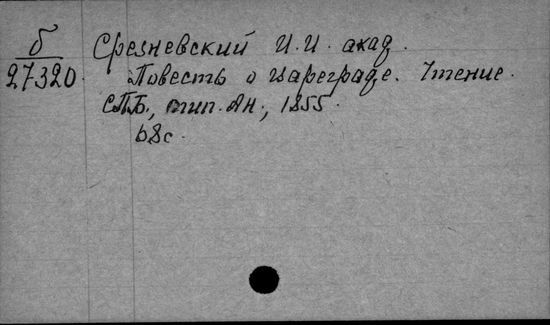 б Срезневский И.И. акад.
27320. Повесть о Цареграде. Чтение.
СПБ, тип. Ан, 1855.
68с.